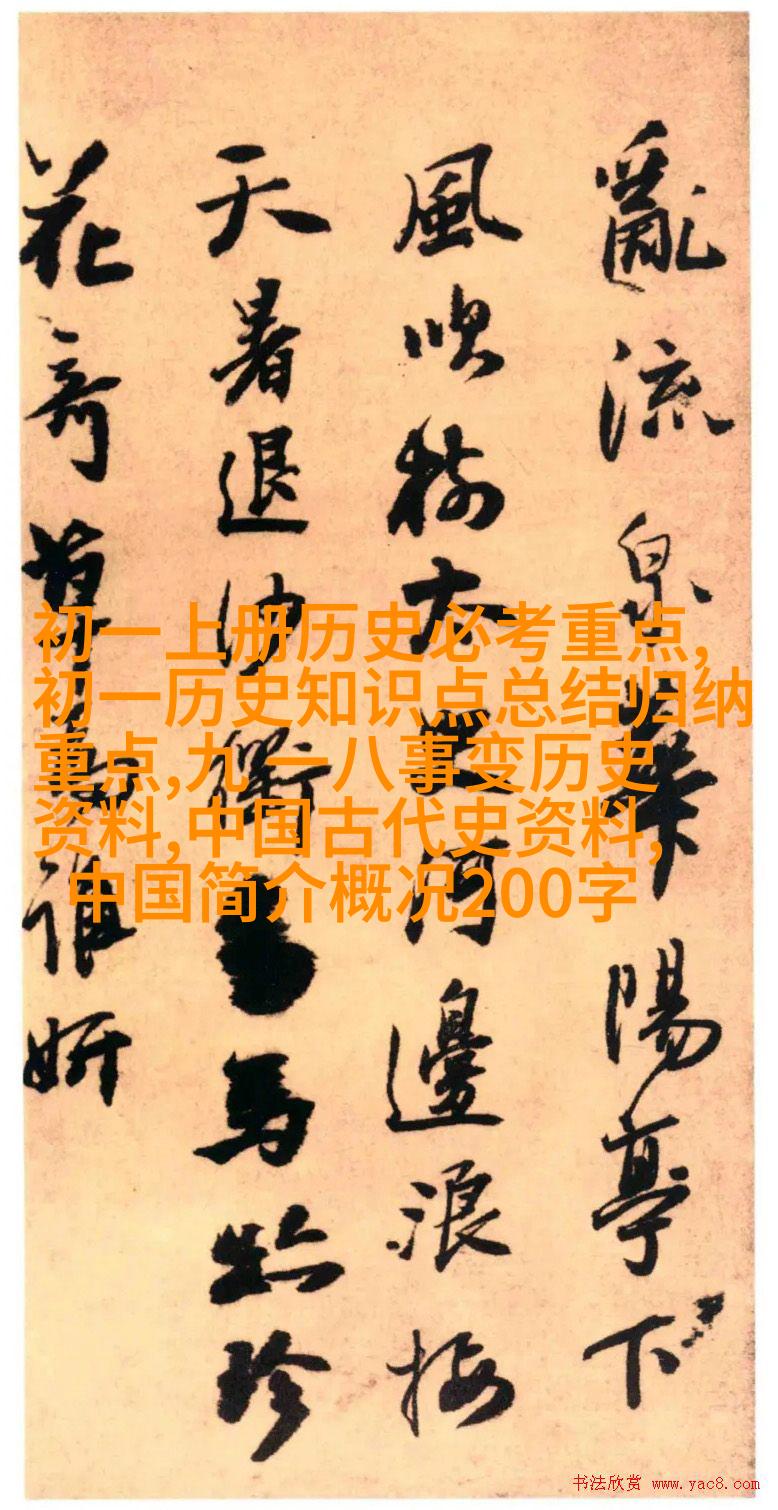 亂流泉華陽亭下
風吹樹大河邊浪接
天暑退沙衢馬跡珍
花奇草誰妍
初一上册历史必考重点,
初一历史知识点总结归纳
重点,九一八事变历史
资料,中国古代史资料,
中国简介概况200字
书法欣赏 www.yac8.com